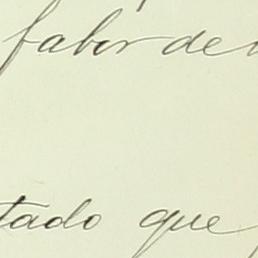 fabor de
tado que